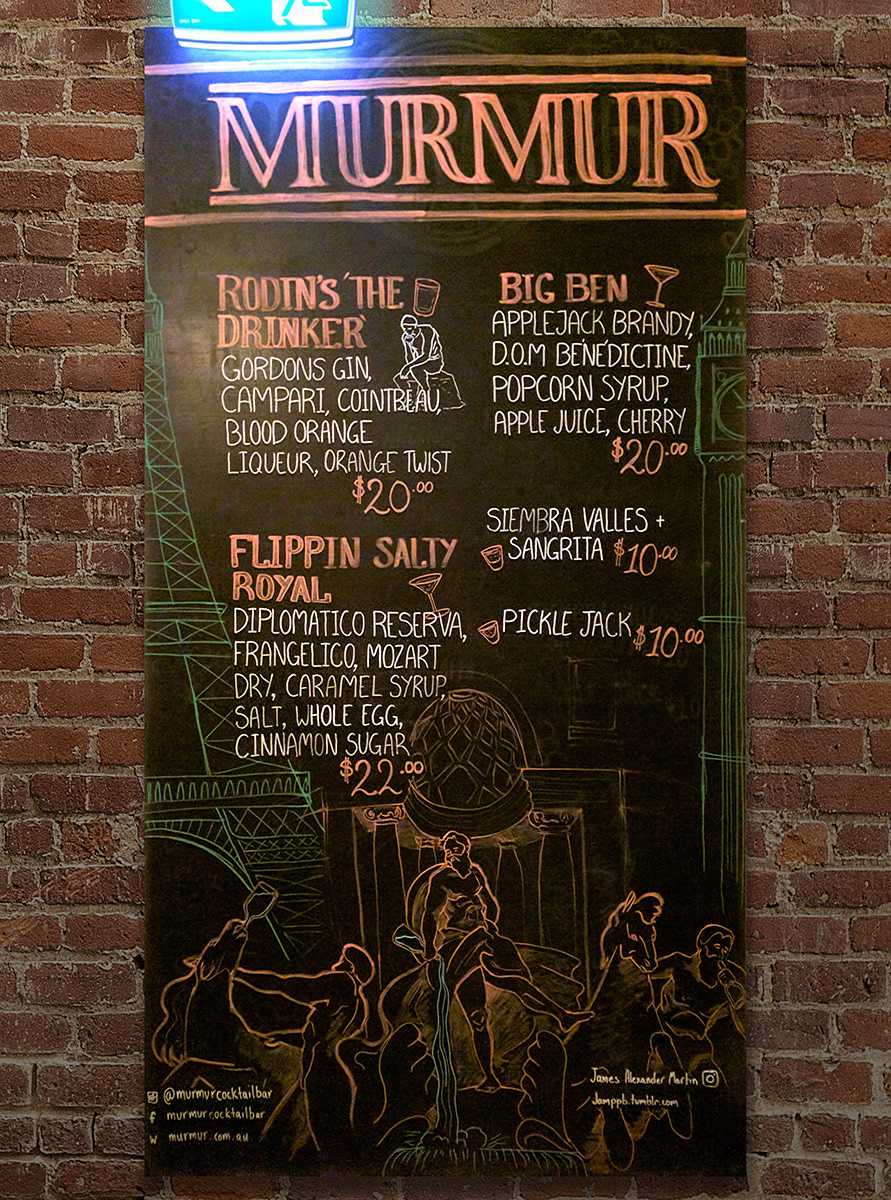 MURMUR
RODIN'S 'THE
DRINKER'
GORDONS GIN,
CAMPARI, COINTREAU,
BLOOD ORANGE
LIQUEUR, ORANGE TWIST
$20.00
FLIPPIN SALTY
ROYAL
DIPLOMATICO RESERVA,
FRANGELICO, MOZART
DRY, CARAMEL SYRUP,
SALT, WHOLE EGG,
CINNAMON SUGAR
$22.00
BIG BEN
APPLEJACK BRANDY,
D.O.M BÉNÉDICTINE,
POPCORN SYRUP,
APPLE JUICE, CHERRY
$20.00
SIEMBRA VALLES +
SANGRITA $10.00
PICKLE JACK $10.00
@murmurcocktailbar
f murmurcocktailbar
w murmur.com.au
James Alexander Martin
jamppb.tumblr.com